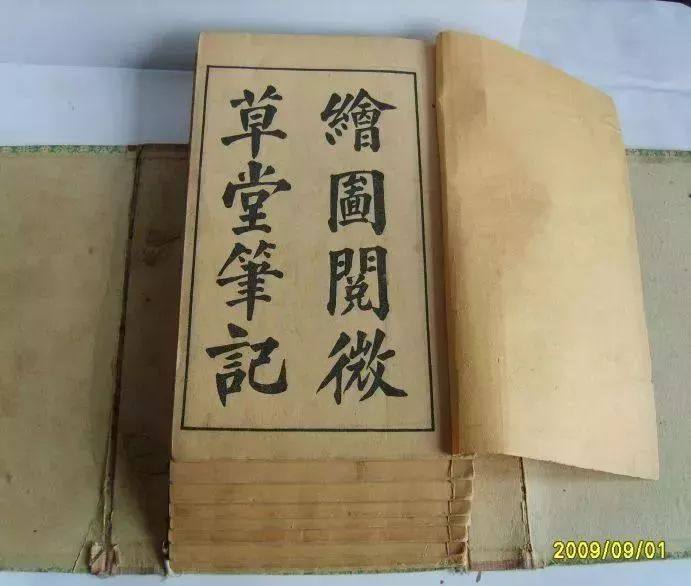 繪圖閱微
草堂筆記
2009/09/01